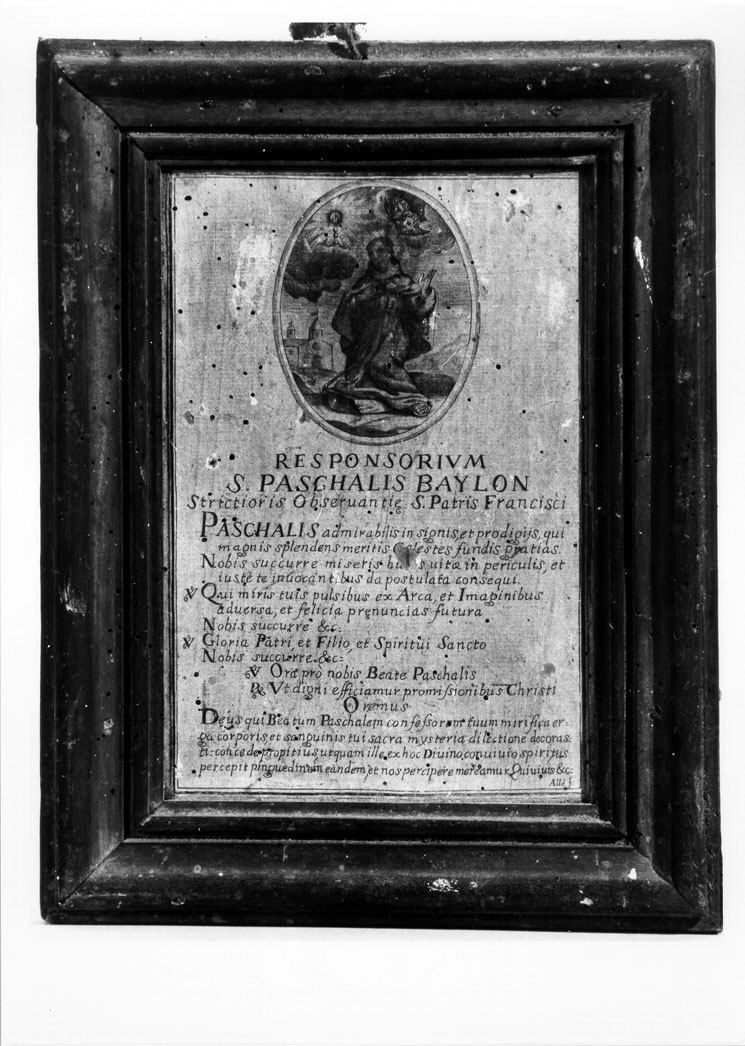 RESPONSORIVM
S. PASCHALIS BAYLON
Strictioris Obseruantię S. Patris Francisci
PASCHALIS admirabilis in signis, et prodigijs, qui
magnis splendens meritis Cęlestes fundis gratias.
Nobis succurre miseris huius uitæ in periculis, et
iustè te inuocantibus da postulata consequi.
℣ Qui miris tuis pulsibus ex Arca, et Imaginibus
aduersa, et felicia pręnuncias futura
Nobis succurre &c:
℣ Gloria Patri, et Filio, et Spiritui Sancto
Nobis succurre &c:
℣ Ora pro nobis Beate Paschalis
℟ Vt digni efficiamur promissionibus Christi
Oremus
Deus qui Beatum Paschalem confessorem tuum mirifica er-
ga corporis, et sanguinis tui sacra mysteria dilectione decoras:
ti: concede propitius, ut quam ille ex hoc Diuino conuiuio spiritus
percepit pinguedinem eandem, et nos percipere mereamur Qui uiuis &c: